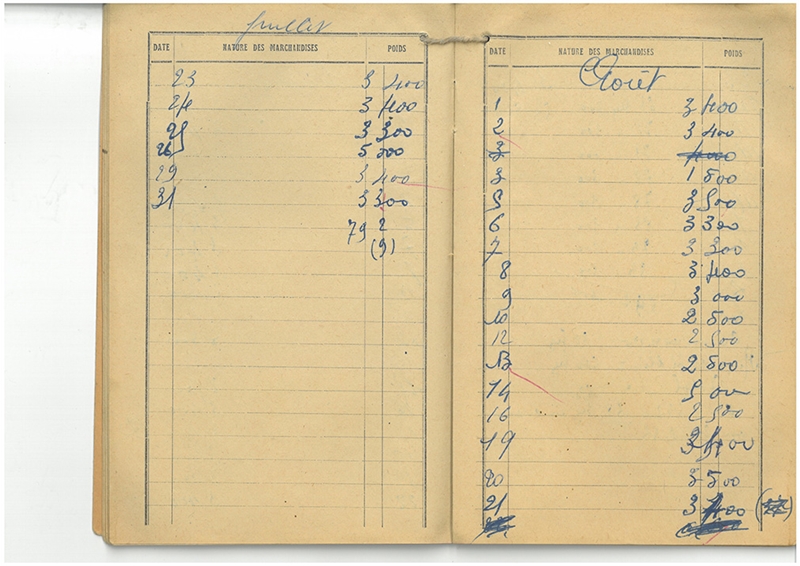 Juillet
DATE NATURE DES MARCHANDISES POIDS
23 3 400
24 3 400
25 3 300
26 5 000
29 3 400
31 3 300
79 2
(9)
DATE NATURE DES MARCHANDISES POIDS
Août
1 3 400
2 3 400
3 1 500
5 3 500
6 3 300
7 3 300
8 3 400
9 3 000
10 2 500
12 2 500
13 2 500
14 5 000
16 2 500
19 3
20 3 500
21 3 400